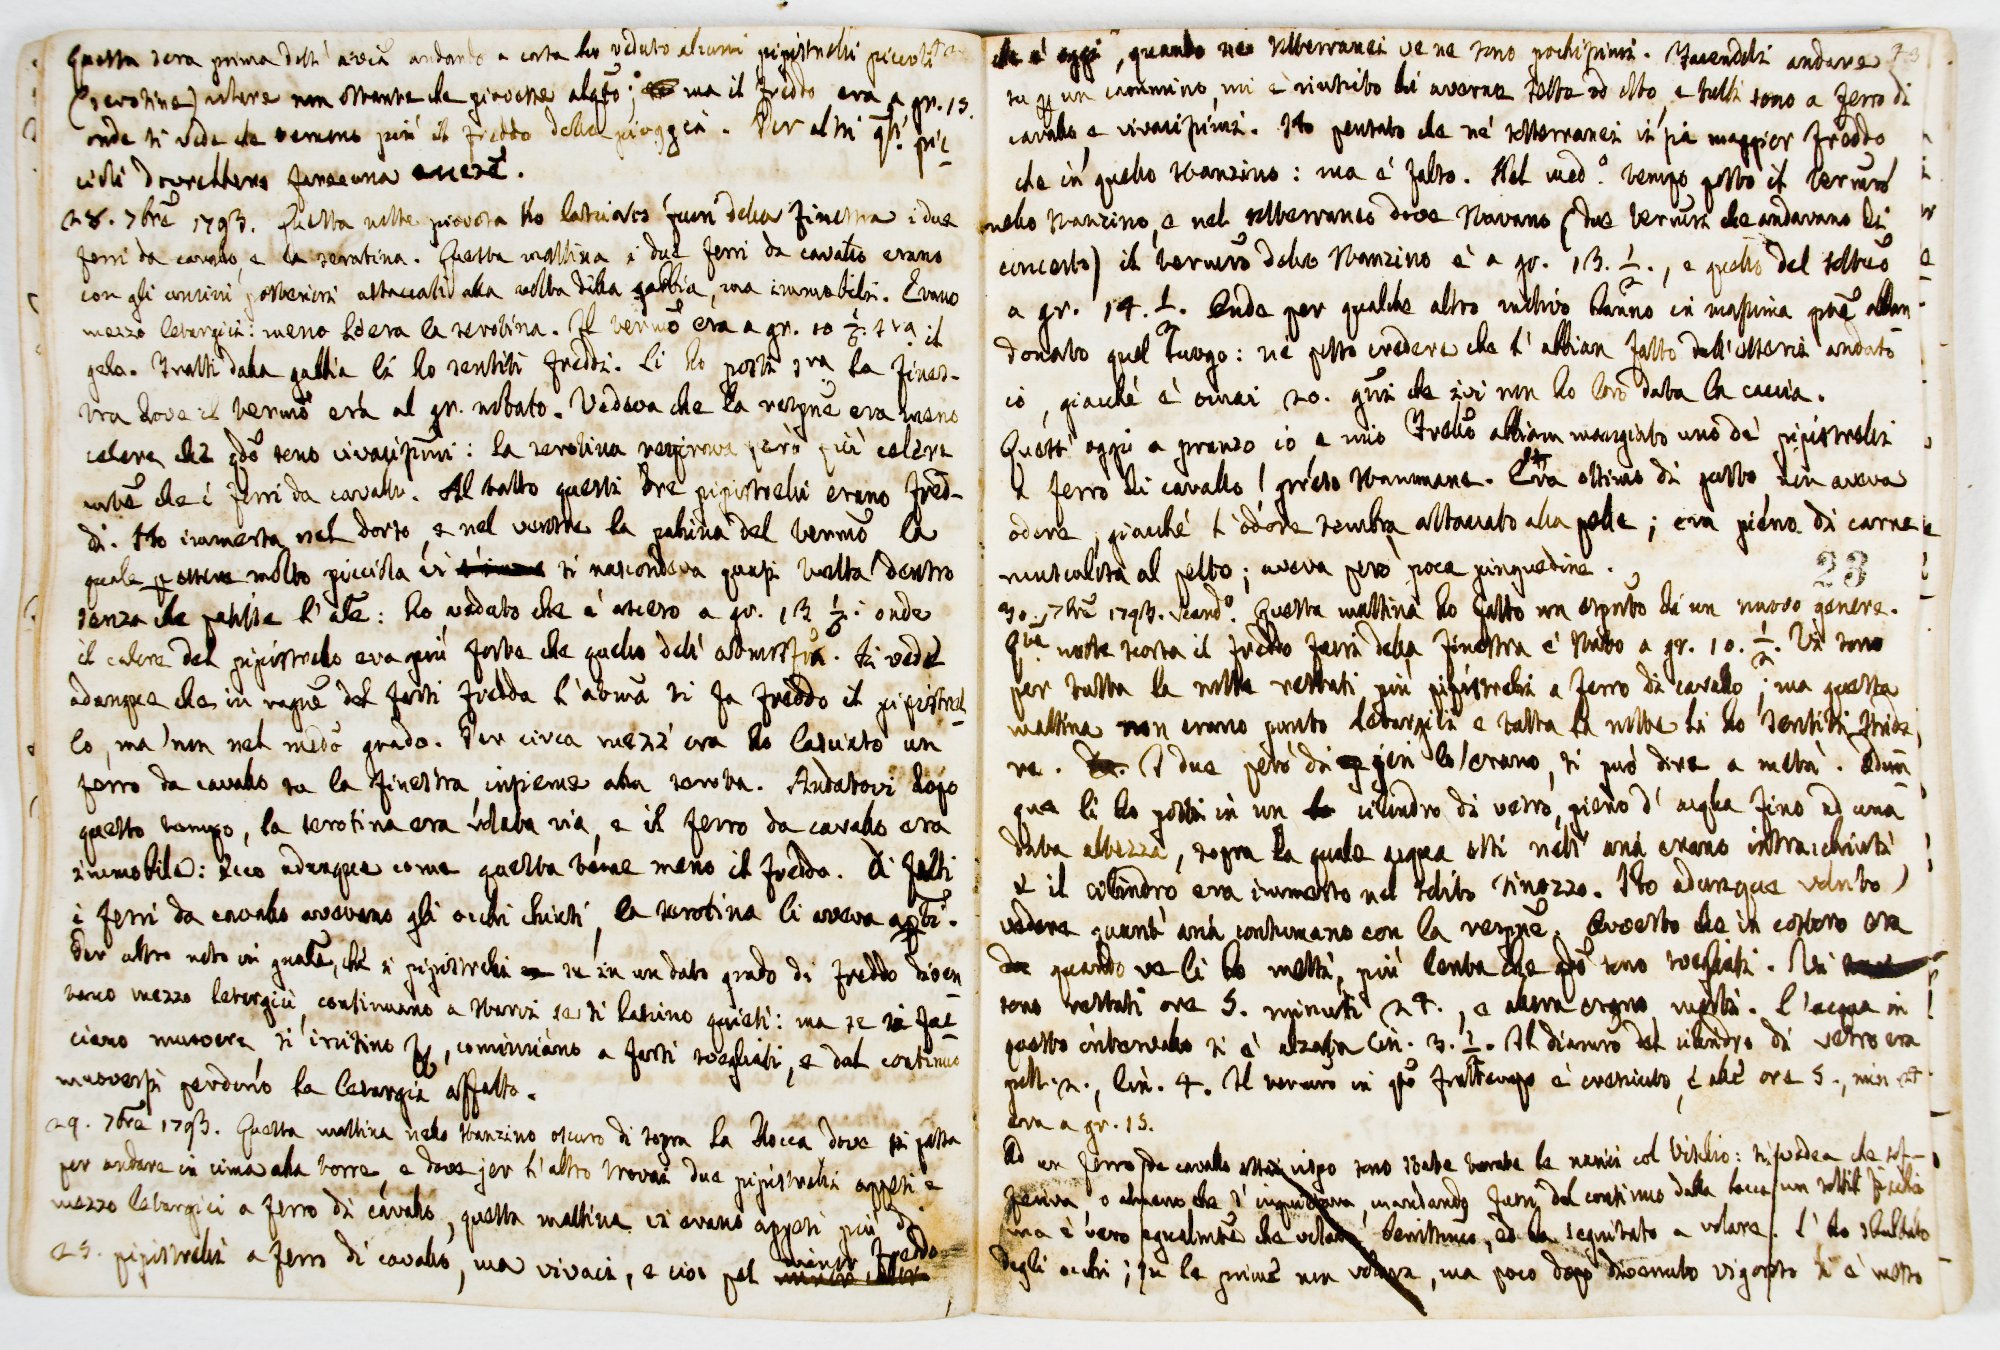 Questa sera prima dell' avia andando a corta ho veduto alcuni pipistrelli piccoli
(serotine) volare non ostante che piovesse alqto; ma il freddo era a gr. 13.
onde si vede che temono più il freddo della pioggia. Per altri qsi pic-
cioli dovrebbero farsene una
28. 7bre 1793. Questa notte piovosa ho lasciato fuori della finestra i due
ferri da cavallo, e la serotina. Questa mattina i due ferri da cavallo erano
con gli posteriori attaccati alla volta della gabbia, ma immobili. Erano
mezzo letargici: meno lo era la serotina. Il termo era a gr. 10 1/2. sra il
gelo. Tratti dalla gabbia li ho sentiti freddi. Li ho posti sra la fines-
tra dove il termo era al gr. notato. Vedeva che la respne era meno
celere che qdo sono vivacissimi: la serotina respirava però più celere
che i ferri da cavallo. Al tatto questi tre pipistrelli erano fred-
di. Ho immersa nel dorso, e nel ventre la pallina del termo la
quale p essere molto picciola vi si nascondeva quasi tutta dentro
senza che patisse l' ale: ho veduto che è asceso a gr. 13 1/2: onde
il calore del pipistrello era più forte che quello dell' atmosfra. Si vede
adunque che in ragne del farsi fredda l' atmra si fa freddo il pipistrel-
lo, ma non nel medo grado. Per circa mezz' ora ho lasciato un
ferro da cavallo su la finestra, insieme alla serotna. Andatovi dopo
questo tempo, la serotina era volata via, e il ferro da cavallo era
immobile: Ecco adunque come questa teme meno il freddo. Di fatti
i ferri da cavallo avevano gli occhi chiusi, la serotina li aveva apti.
Per altro noto in gnale, che i pipistrelli se in un dato grado di freddo diven-
tano mezzo letargici, continuano a starvi se si lascino quieti: ma se si fac-
ciano muovere, si irritino &c, cominciano a farsi svegliati, e dal continuo
muoversi perdono la letargia affatto.
29. 7bre 1793. Questa mattina nello stanzino oscuro di sopra la Rocca dove si passa
per andare in cima alla torre, e dove jer l' altro trovai due pipistrelli appesi e
mezzo letargici a ferro di cavallo, questa mattina vi erano appesi più di
25. pipistrelli a ferro di cavallo, ma vivaci, e ciò pel minor freddo
che è oggi, quando ne' sotterranei ve ne sono pochissimi. Facendoli andare
su p un cammino, mi è riuscito di averne sette od otto, e tutti sono a ferro di
cavallo, e vivacissimi. Ho pensato che ne' sotterranei vi sia maggior freddo
che in quello stanzino: ma è falso. Nel medo tempo posto il termro
nello stanzino, e nel sotterraneo dove stavano (due termri che andavano di
concerto) il termro dello stanzino è a gr. 13. 1/2., e quello del sotteo
a gr. 14. 1/2. Onde per qualche altro motivo hanno in massima pte abban-
donato quel luogo: nè posso credere che l' abbian fatto dall' esservi andato
io, giacchè è omai 20. gni che ivi non ho loro data la caccia.
Quest' oggi a pranzo io, e mio Frello abbiam mangiato uno de' pipistrelli
a ferro di cavallo preso stammane. Era ottimo di gusto, non aveva
odore, giacchè l' odore sembra attaccato alla pelle; era pieno di carne e
muscalità al petto; aveva però poca pinguedine.
23
30. 7bre 1793. Scando. Questa mattina ho fatto un espnto di un nuovo genere.
Qta notte scorsa il freddo fuori della finestra è stato a gr. 10. 1/2. Vi sono
per tutta la notte restati più pipistrelli a ferro di cavallo; ma questa
mattina non erano punto letargici e tutta la notte li ho sentiti stride-
re. I due però di jeri lo erano, si può dire, a metà. Adun-
que li ho posti in un cilindro di vetro, pieno d' acqua fino ad una
data altezza, sopra la quale acqua essi nell' aria erano intrachiusi
e il cilindro era immerso nel solito tinozzo. Ho adunque voluto
vedere quant' aria consumano con la respne. Avverto che in costoro era
quando ve li ho messi, più lenta che qdo sono svegliati. Vi
sono restati ore 5. minuti 24., e allora erano morti. L' acqua in
questo intervallo si è alzata lin. 3. 1/2. Il diamro del cilindro di vetro era
poll. 2., lin. 4. Il termro in qto frattempo è cresciuto, e alle ore 5., min. 24
era a gr. 15.
Ad un ferro da cavallo vispo sono state turate le narici col vischio: si vedea che sof-
feriva, o almeno che s' inquietava, mandando fuori del continuo dalla bocca un sottil fischio
ma è vero egualmte che volava benissimo, ed ha seguitato a volare. L' ho
degli occhi; su le prime non volava, ma poco dopo divenuto vigoroso si è messo